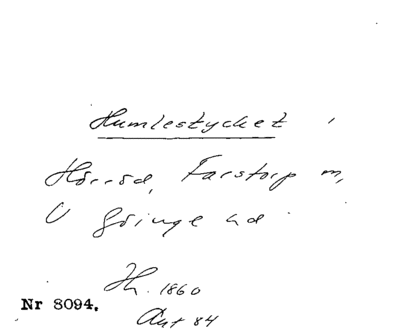 Humlestycket
Hörröd, Farstorp
V Göinge hd
Hh. 1860
Nr 8094.
Ant 84